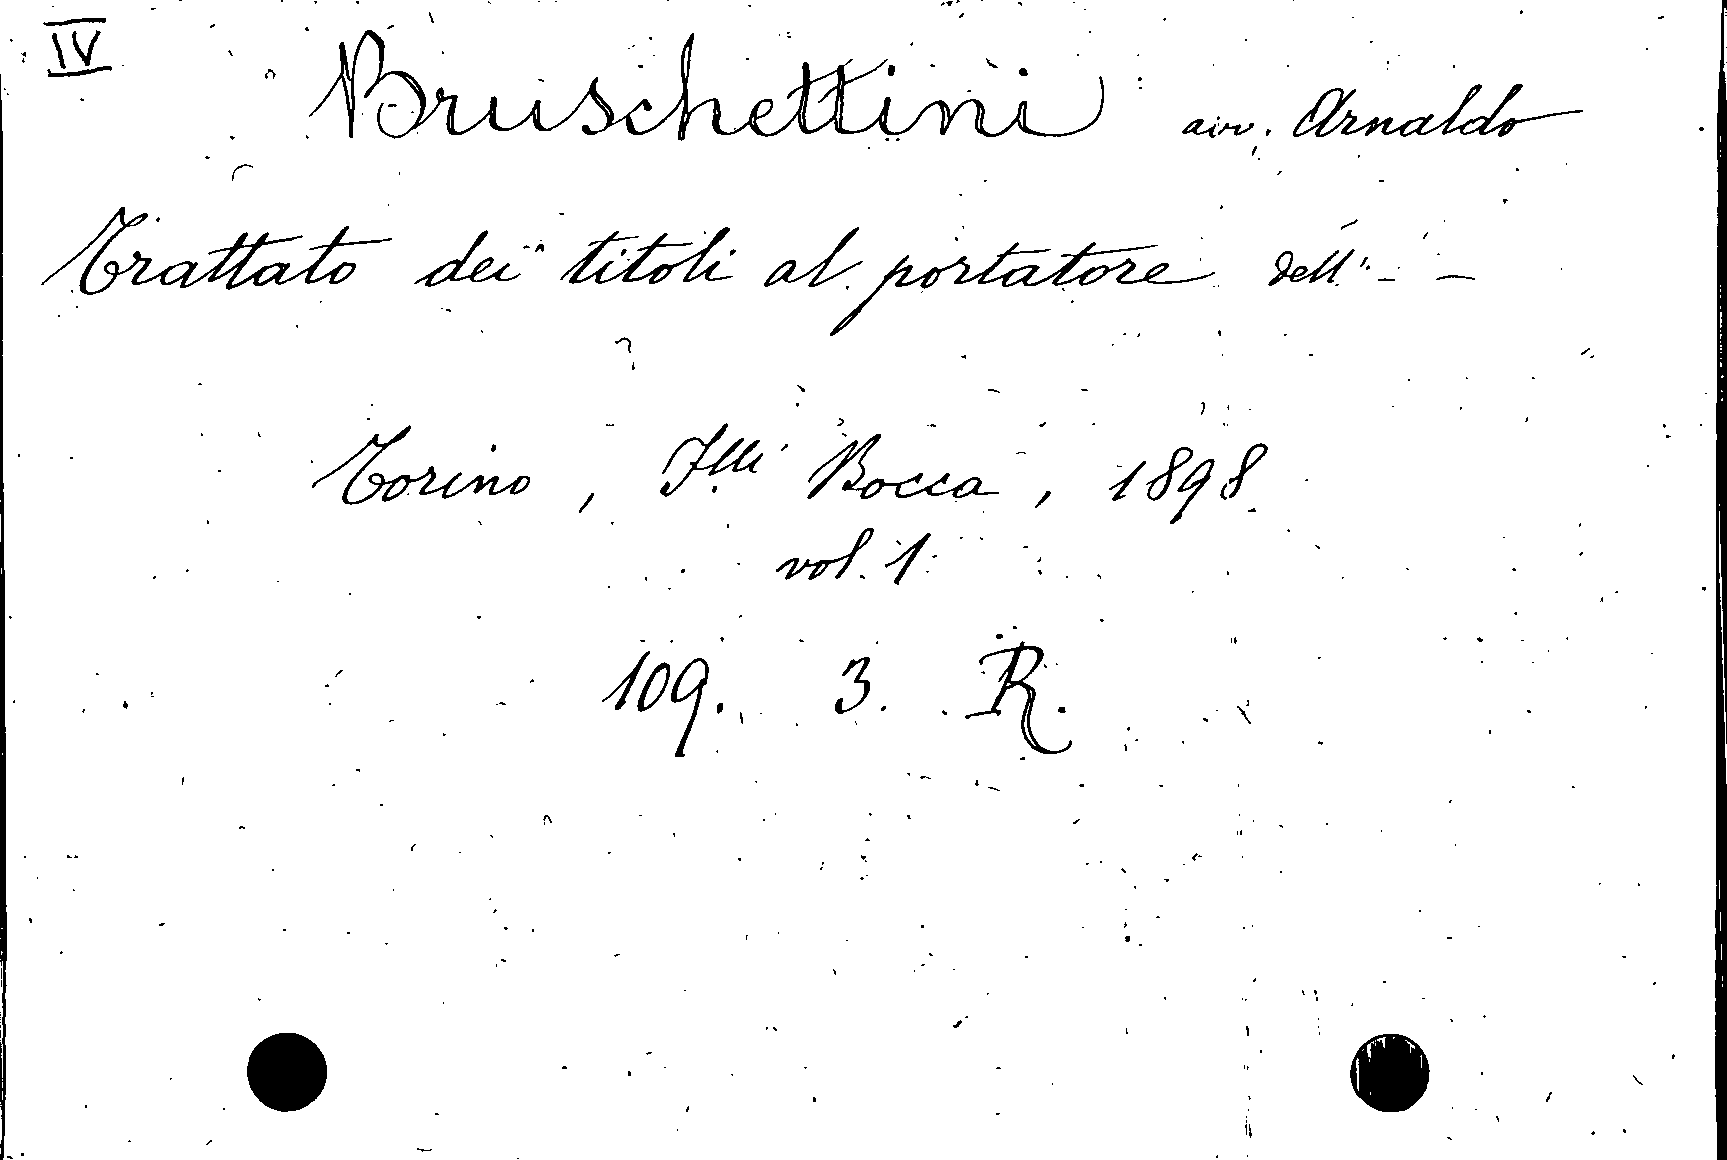 IV
Bruschettini avv. Arnaldo
Trattato dei titoli al portatore dell' - -
Torino, F.lli Bocca, 1898
vol. 1
109. 3. R.